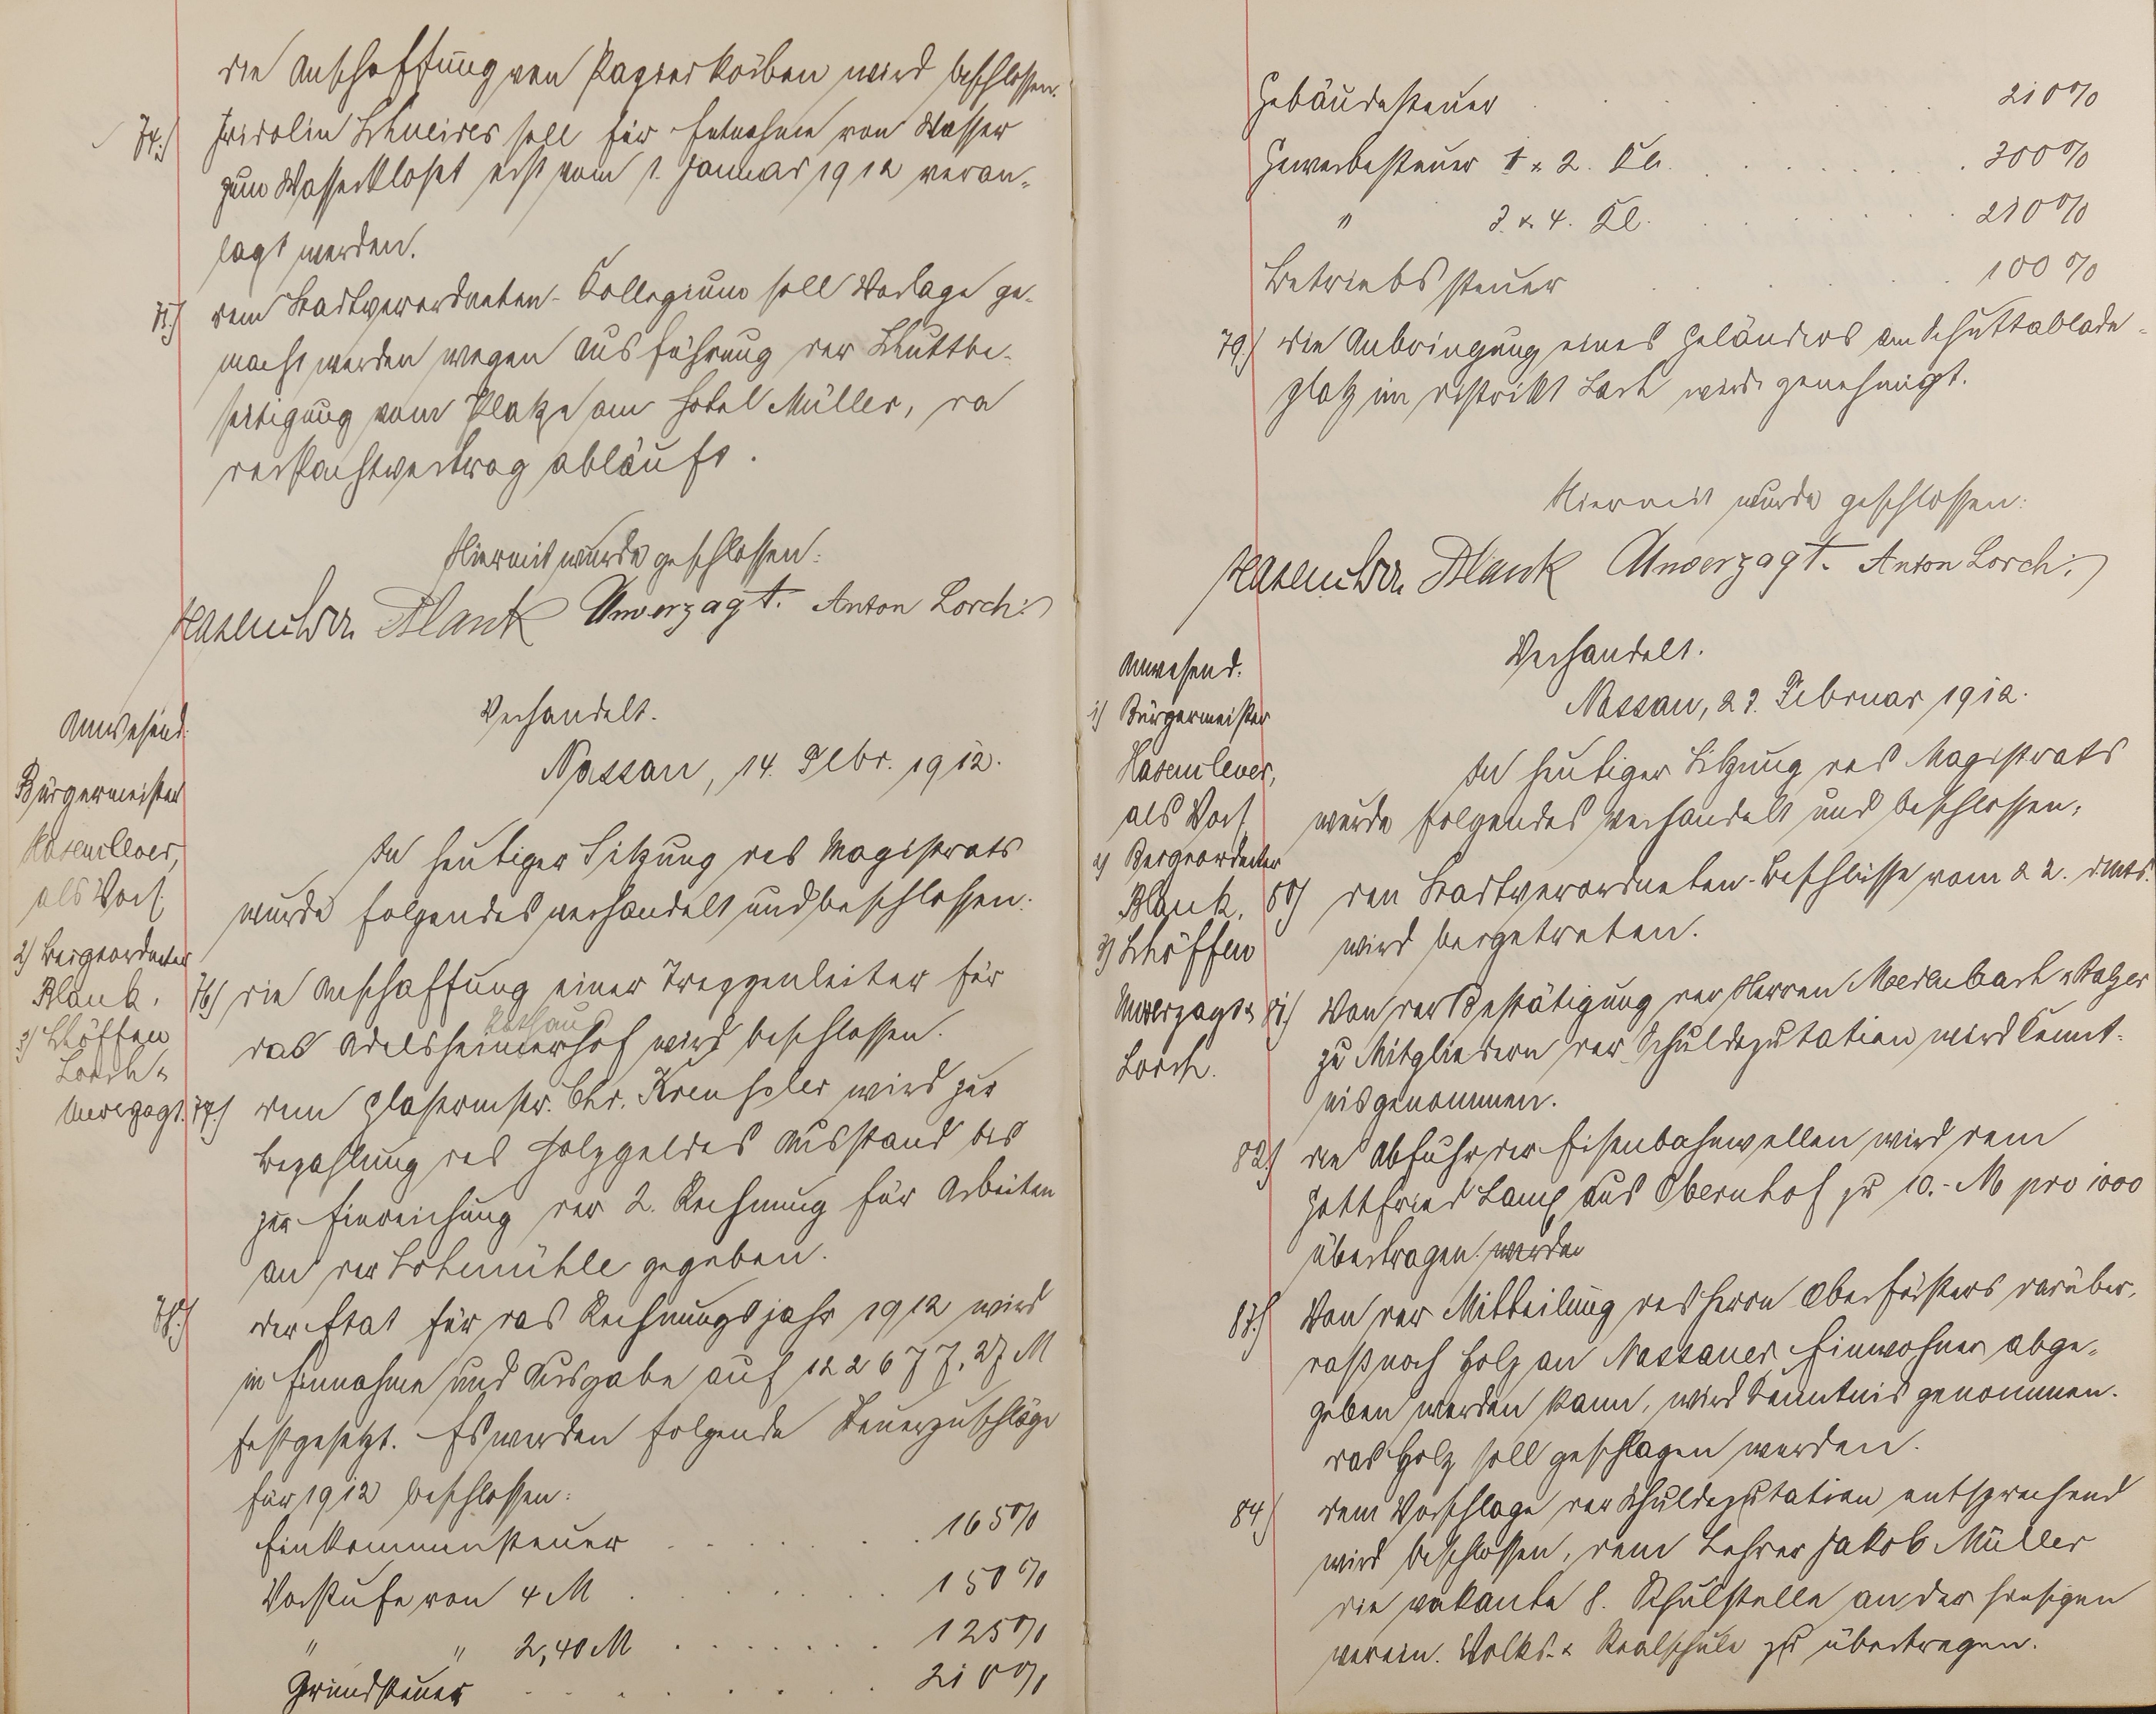 die Anschaffung von Papierkörben wird beschlossen.
74.) Fridolin Schneider soll für Entnahme von Wasser
zum Wasserklosett erst vom 1. Januar 1912 veran-
lagt werden.
75.) dem Stadtverordneten-Kollegium soll Vorlage ge-
macht werden wegen Ausführung der Schuttbe-
seitigung vom Platze am Hotel Müller, da
der Pachtvertrag abläuft.
Hiermit wurde geschlossen:
Hasenclever Blank Unverzagt. Anton Lorch.
Verhandelt.
Nassau, 14. Febr. 1912.
Anwesend:
Bürgermeister
Hasenclever,
als Vors.
2) Beigeordneter
Blank.
3) Schöffen
Lorch &
Unverzagt.
In heutiger Sitzung des Magistrats
wurde folgendes verhandelt und beschlossen:
76) die Anschaffung einer Treppenleiter für
Rathaus
das Adelsheimerhof wird beschlossen.
77.) dem Glasermstr. Chr. wird zur
Bezahlung des Holzgeldes Ausstand bis
zur Einreichung der 2. Rechnung für Arbeiten
an der Lohmühle gegeben.
78.) der Etat für das Rechnungsjahr 1912 wird
in Einnahme und Ausgabe auf 122677,27 M
festgesetzt. Es werden folgende Steuerzuschläge
für 1912 beschlossen:
Einkommensteuer . . . . . 165%
Vorstufe von 4 M . . . . . 150%
" " 2,40 M . . . . . . . 125%
Grundsteuer . . . . . . . . 210%
Gebäudesteuer . . . . . . . 210%
Gewerbesteuer 1 & 2. Kl. . . . . . . 300%
" 3. & 4. Kl. . . . . . . 210%
Betriebssteuer . . . . . . 100%
79.) die Anbringung eines Geländers am Schuttablade-
platz im Distrikt Lach wird genehmigt.
Hiermit wurde geschlossen:
Hasenclever Blank Unverzagt. Anton Lorch.
Verhandelt.
Nassau, 23. Februar 1912.
Anwesend:
1) Bürgermeister
Hasenclever,
als Vors.
2) Beigeordneter
Blank.
3) Schöffen
Unverzagt &
Lorch.
In heutiger Sitzung des Magistrats
wurde folgendes verhandelt und beschlossen:
80) den Stadtverordneten-Beschlüsse vom 22. d. Mts.
wird beigetreten.
81.) Von der Bestätigung der Herren Medenbach & Balzer
zu Mitgliedern der Schuldeputation wird Kennt-
nis genommen.
82.) die Abfuhr der Eisenbahnwellen wird dem
Gottfried Lang aus Obernhof zu 10.- M pro 1000
übertragen. werden
83.) Von der Mitteilung des Herrn Oberförsters darüber,
daß noch Holz an Nassauer Einwohner abge-
geben werden kann, wird Kenntnis genommen.
das Holz soll geschlagen werden.
84) dem Vorschlage der Schuldeputation entsprechend
wird beschlossen, dem Lehrer Jakob Müller
die vakante 8. Schulstelle an der hiesigen
verein. Volks- & Realschule zu übertragen.